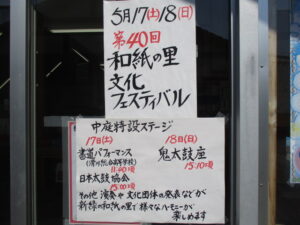 5月17(土)18(日)
第40回
和紙の里
文化
フェスティバル
中庭特設ステージ
17日(土)
書道パフォーマンス
11:40頃
日本太鼓協会
15:00頃
18日(日)
鬼太鼓座
15:10頃
その他演奏や文化団体の発表などが
新緑の和紙の里で様々なハーモニーが
楽しめます